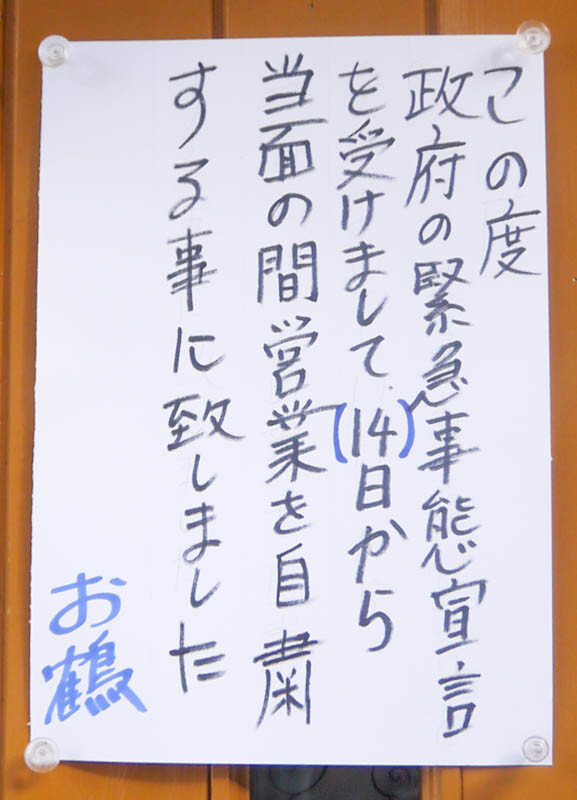 この度
政府の緊急事態宣言
を受けまして(14)日から
当面の間営業を自粛
する事に致しました
お鶴